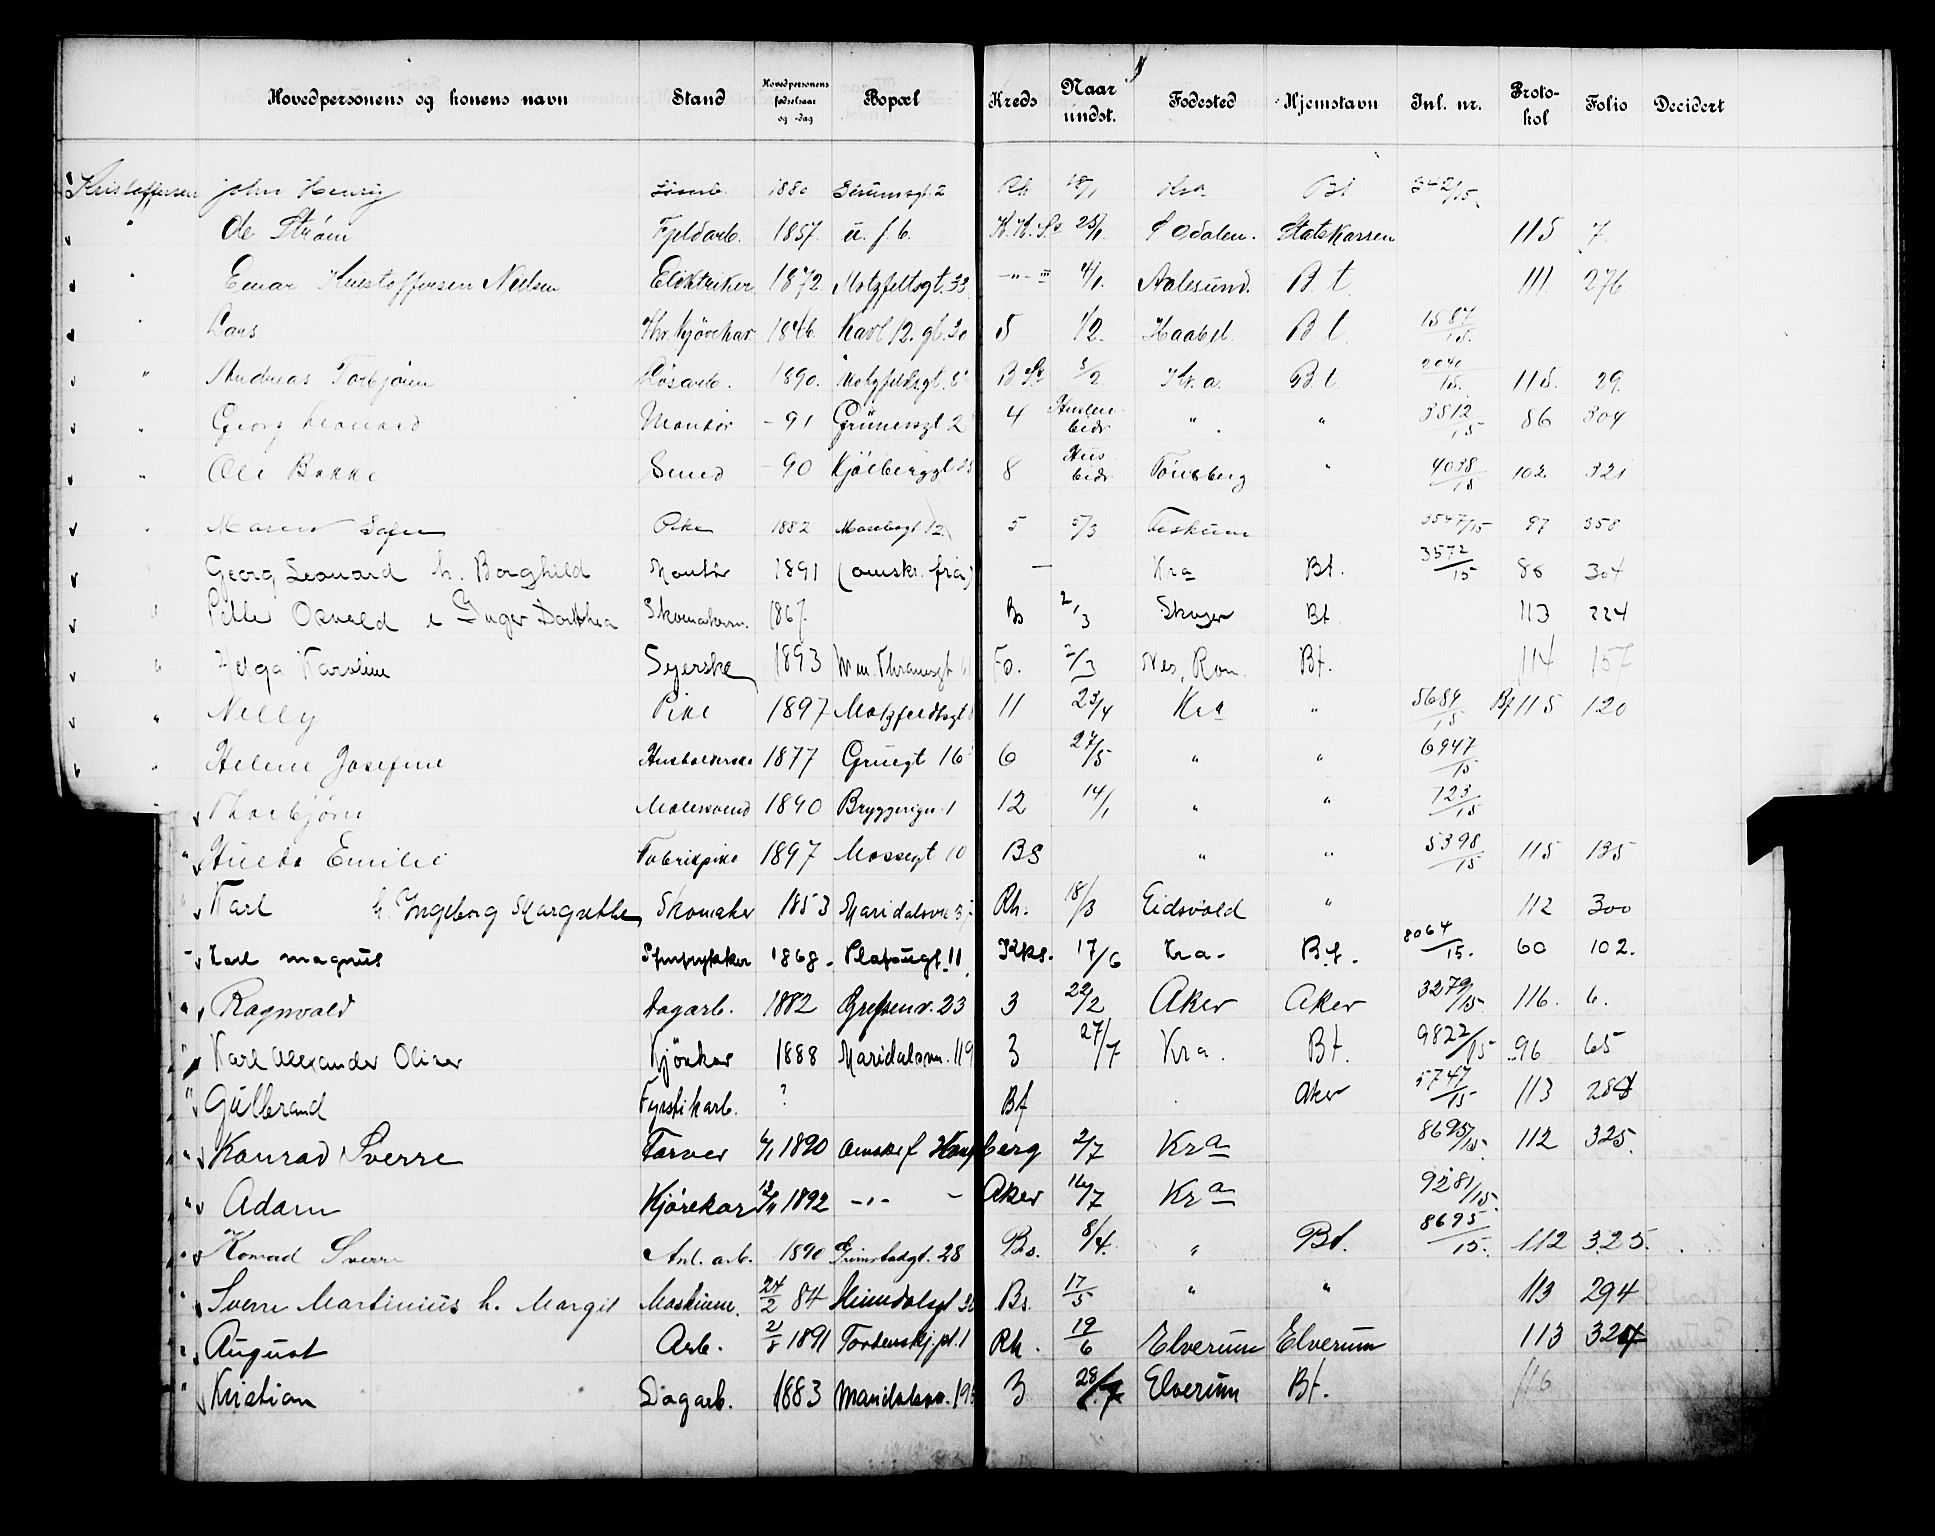 Hovedpersonens og konens navn Stand Hovedpersonens fødselsaar og -dag Bopæl Kreds Naar undst. Fødested Hjemstavn Inl. nr. Protokol Folio Decidert
Kristoffersen John Henrig 1880 2 Rh 18/1 Kra Bt 342/15.
" Ole Strøm Fjeldarb. 1857. u. f. b. 25/1. S. Odalen. Statskassen 115 7
" Einar Kristoffersen Nielsen Elektriker 1872 Motzfeltsgt. 33. —"— 4/1. Aalesund. B. t. 111. 276
" Lars Hr. kjørekar 1846. Karl 12. gt. 30 5 1/2. Haabøl. B. t. 1587/15.
" Andreas Torbjørn Løsarb. 1890. Motzfeldtsgt. B Sk 3/2 Kr. a. B t. 2040/15. 115. 29.
" Georg Leonard Montør – 91 Grünersgt 2 4 Husleiebidr " " 3812/15 86 304
" Ole Bakke Smed – 90 Kjølberggt 25 8 Husbidr Tønsberg " 4038/15 102 321
" Maren Sofie Pike 1882 Mosebogt. 12 5 5/3 Eeskum 3547/15 97 358
Georg Leonard h. Borghild Montør 1891 (omskr. fra) — Kra Bt. 3572/15 86 304
" Pelle Osvald e Inger Dorthea Skomakersv. 1867. Bs 2/3 Bt 113 224
" Helga Karoline Syerske 1893 Wm. Thranesgt Fo. 2/3 Nes, Rom. Bt. 114 157
" Nelly Pike 1897 Motzfeldtsgt 11 23/4 Kra " 5684/15 Bf 115 120
" Helene Josefine Husholderske 1877 Gruegt 16 6 27/5 " " 6947/15
" Thorbjørn Malersvend 1890 Bryggerign. 1 12 14/1 " " 723/15
" Hulda Emilie Fabrikpike 1897 Mossegt 10 BS " " 5398/15 115 135
" Karl h. Ingeborg Margrethe Skomaker 1853 Maridalsvn Rh. 18/3 Eidsvold " 112 300
– Karl Magnus 1868. Platougt. 11. Kks. 17/6 Kra. Bt. 8064/15. 60 102.
" Ragnvald Dagarb. 1882 Grefsenv. 23 3 22/2 Aker Aker 3279/15. 116. 6.
" Karl Alexander Oliver Kjørekar 1888 Maridalsvn. 119 3 27/7 Kra. Bt. 9822/15 96 65
" Gulbrand Fyrstikarb. ? Bf Aker 5747/15 113 284
" Konrad Sverre Farver 6/1 1890 Omskr f Haugsberg 2/7 Kra 8695/15. 112 325.
" Adam Kjørekar 1892 –"– – Aker 16/7 Kra 9281/15.
" Konrad Sverre Anl. arb. 1890 Grimstadgt. 28 Bs. 8/4. " Bt. 8695/15. 112 325.
" Sverre Martinius h. Margit Maskinm. 24/2 84 Heimdalsgt Bs. 17/5 " " 113 294
" August Arb. 1891 Tordenskj. pl. 1 Rh. 19/6 Elverum Elverum 113 324
" Kristian Dagarb. 1883 Maridalsvn. 3 28/7 Elverum Bt. 116